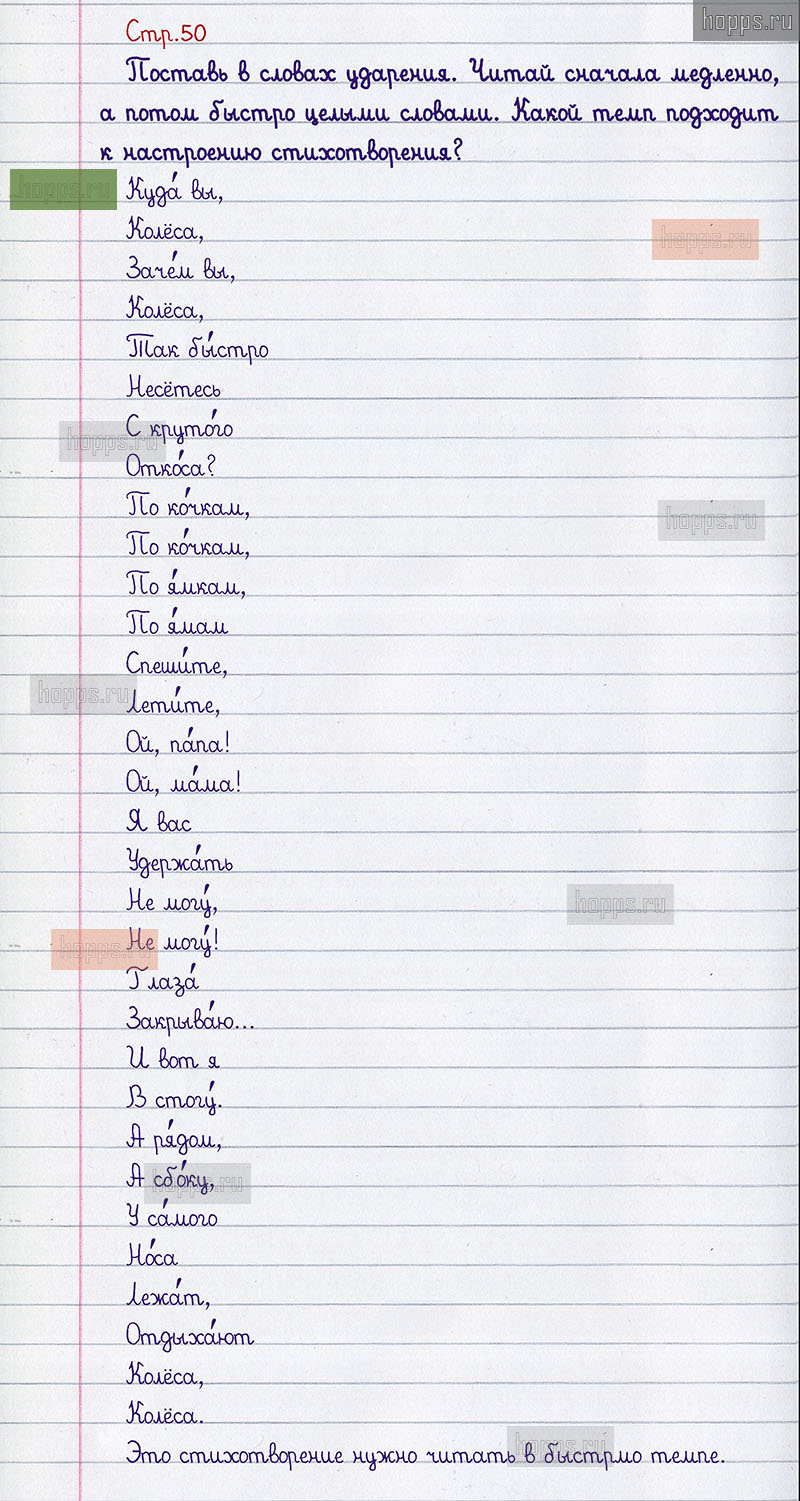 hopps.ru
Стр.50
Поставь в словах ударения. Читай сначала медленно,
а потом быстро целыми словами. Какой темп подходит
к настроению стихотворения?
hopps.ru
Куда́ вы,
Колёса,
hopps.ru
Заче́м вы,
Колёса,
Так бы́стро
Несётесь
С круто́го
hopps.ru
Отко́са?
По ко́чкам,
hopps.ru
По ко́чкам,
По я́мкам,
По я́мам
Спеши́те,
hopps.ru
Лети́те,
Ой, па́па!
Ой, ма́ма!
Я вас
Удержа́ть
Не могу́,
hopps.ru
Не могу́!
hopps.ru
Глаза́
Закрыва́ю...
И вот я
В стогу́.
А ря́дом,
А сбо́ку,
hopps.ru
У са́мого
Но́са
Лежа́т,
Отдыха́ют
Колёса,
Колёса.
hopps.ru
Это стихотворение нужно читать в быстрмо темпе.